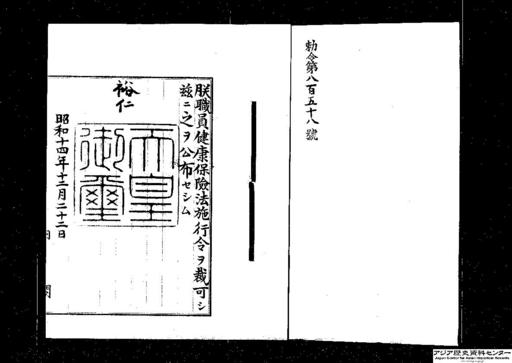 勅令第八百五十八號
朕職員健康保險法施行令ヲ裁可シ
茲ニ之ヲ公布セシム
裕仁
天皇
御璽
昭和十四年十二月二十二日
内閣
アジア歴史資料センター
Japan Center for Asian Historical Records